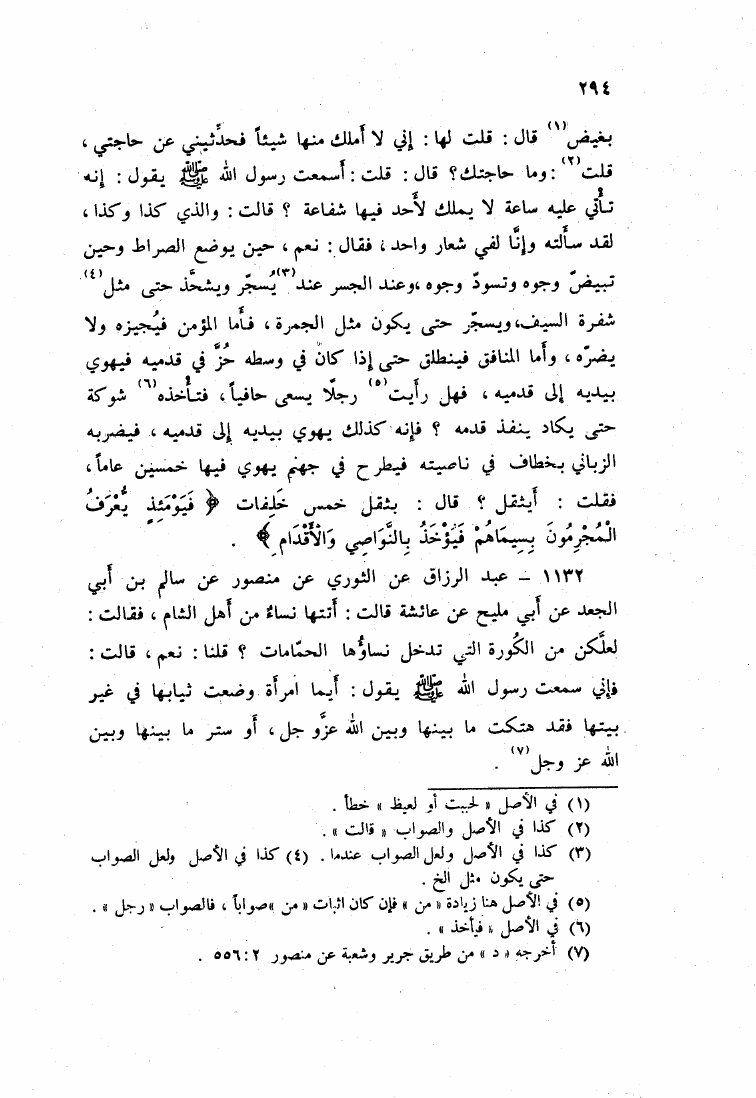 ٢٩٤
بغيض(١) قال : قلت لها : إني لا أملك منها شيئاً فحدِّثيني عن حاجتي ،
قلت(٢) : وما حاجتك؟ قال : قلت : أسمعت رسول الله ﷺ يقول : إنه
تأتي عليه ساعة لا يملك لأحد فيها شفاعة ؟ قالت : والذي كذا وكذا ،
لقد سألته وإنَّا لفي شعار واحد ، فقال : نعم ، حين يوضع الصراط وحين
تبيضّ وجوه وتسودّ وجوه ،وعند الجسر عند(٣) يُسجّر ويشحَّذ حتى مثل(٤)
شفرة السيف، ويسجّر حتى يكون مثل الجمرة ، فأما المؤمن فيُجيزه ولا
يضرّه ، وأما المنافق فينطلق حتى إذا كان في وسطه حُزَّ في قدميه فيهوي
بيديه إلى قدميه ، فهل رأيت(٥) رجلًا يسعى حافياً ، فتأخذه(٦) شوكة
حتى يكاد ينفذ قدمه ؟ فإنه كذلك يهوي بيديه إلى قدميه ، فيضربه
الزباني بخطاف في ناصيته فيطرح في جهنم يهوي فيها خمسين عاماً ،
فقلت : أيثقل ؟ قال : بثقل خمس خَلِفات ﴿ فَيَوْمَئِذٍ يُّعْرَفُ
الْمُجْرِمُونَ بِسِيمَاهُمْ فَيُؤْخَذُ بِالنَّوَاصِي وَالْأَقْدَامِ ﴾ .
١١٣٢ – عبد الرزاق عن الثوري عن منصور عن سالم بن أبي
الجعد عن أبي مليح عن عائشة قالت : أتتها نساءٌ من أهل الشام ، فقالت :
لعلَّكن من الكُورة التي تدخل نساؤُها الحمّامات ؟ قلنا : نعم ، قالت :
فإني سمعت رسول الله ﷺ يقول : أيما امرأة وضعت ثيابها في غير
بيتها فقد هتكت ما بينها وبين الله عزَّو جل ، أو ستر ما بينها وبين
الله عز وجل(٧) .
(١) في الأصل « لحببت أو لعيظ » خطأ .
(٢) كذا في الأصل والصواب « قالت » .
(٣) كذا في الأصل ولعل الصواب عندما . (٤) كذا في الأصل ولعل الصواب
حتى يكون مثل الخ .
(٥) في الأصل هنا زيادة « من » فإن كان اثبات « من » صواباً ، فالصواب « رجل » .
(٦) في الأصل « فيأخذ » .
(٧) أخرجه « د » من طريق جرير وشعبة عن منصور ٢ : ٥٥٦ .